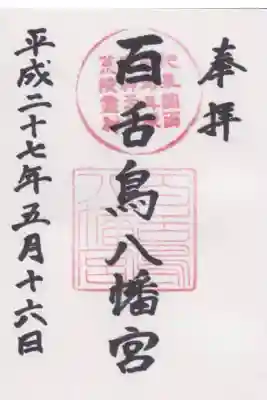 奉拝
百舌鳥八幡宮
平成二十七年五月十六日